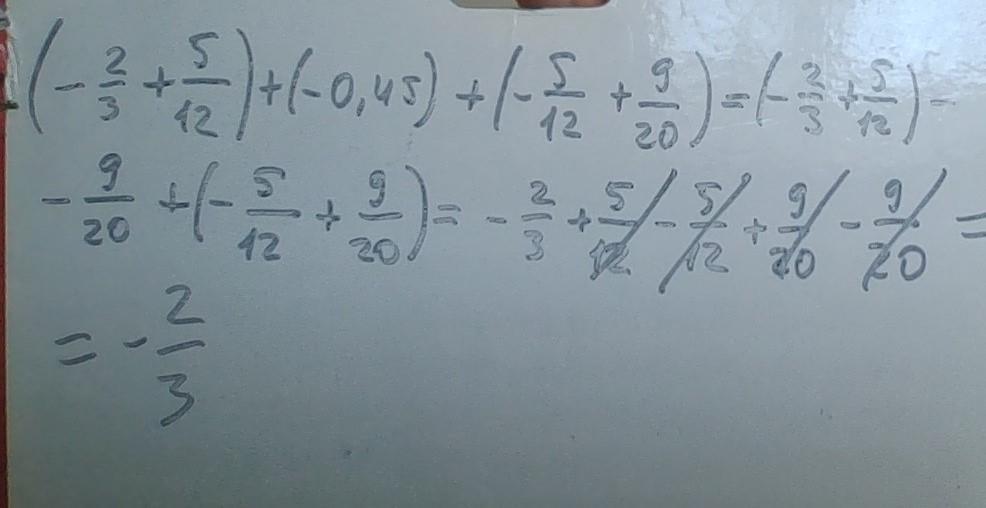 (-2/3 + 5/12) + (-0,45) + (-5/12 + 9/20) = (-2/3 + 5/12) -
- 9/20 + (-5/12 + 9/20) = - 2/3 + 5/12 - 5/12 + 9/20 - 9/20 =
= - 2/3